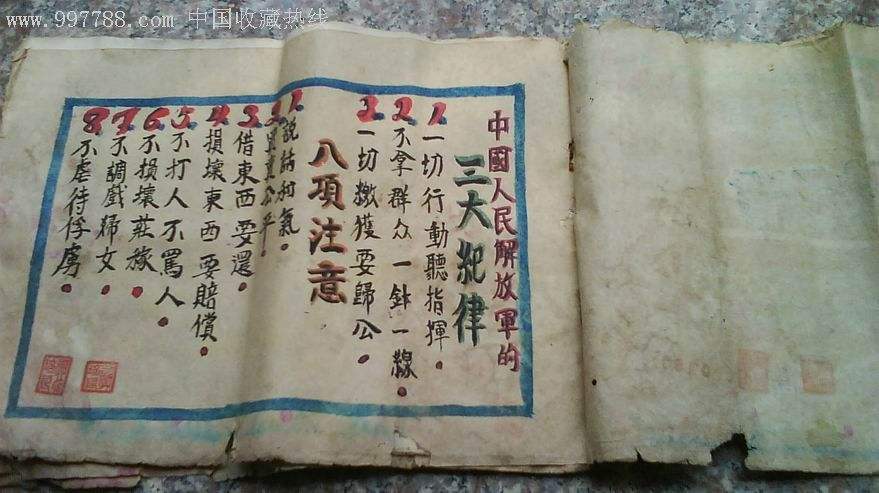 www.997788.com 中国收藏热线
中國人民解放軍的
三大紀律
1. 一切行動聽指揮。
2. 不拿群众一針一線。
3. 一切繳獲要歸公。
八項注意
1. 說話和氣。
2. 買賣公平。
3. 借東西要還。
4. 損壞東西要賠償。
5. 不打人不罵人。
6. 不損壞莊稼。
7. 不調戲婦女。
8. 不虐待俘虜。